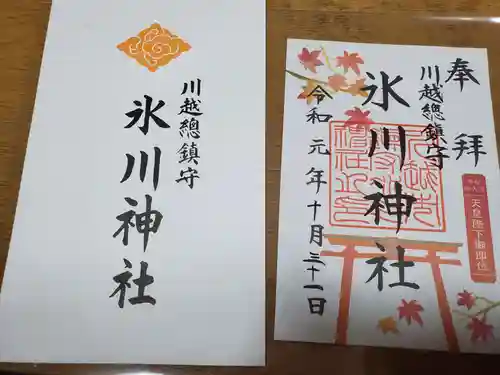 川越總鎮守
氷川神社
奉拝
川越總鎮守
氷川神社
令和元年十月三十一日
天皇陛下御即位